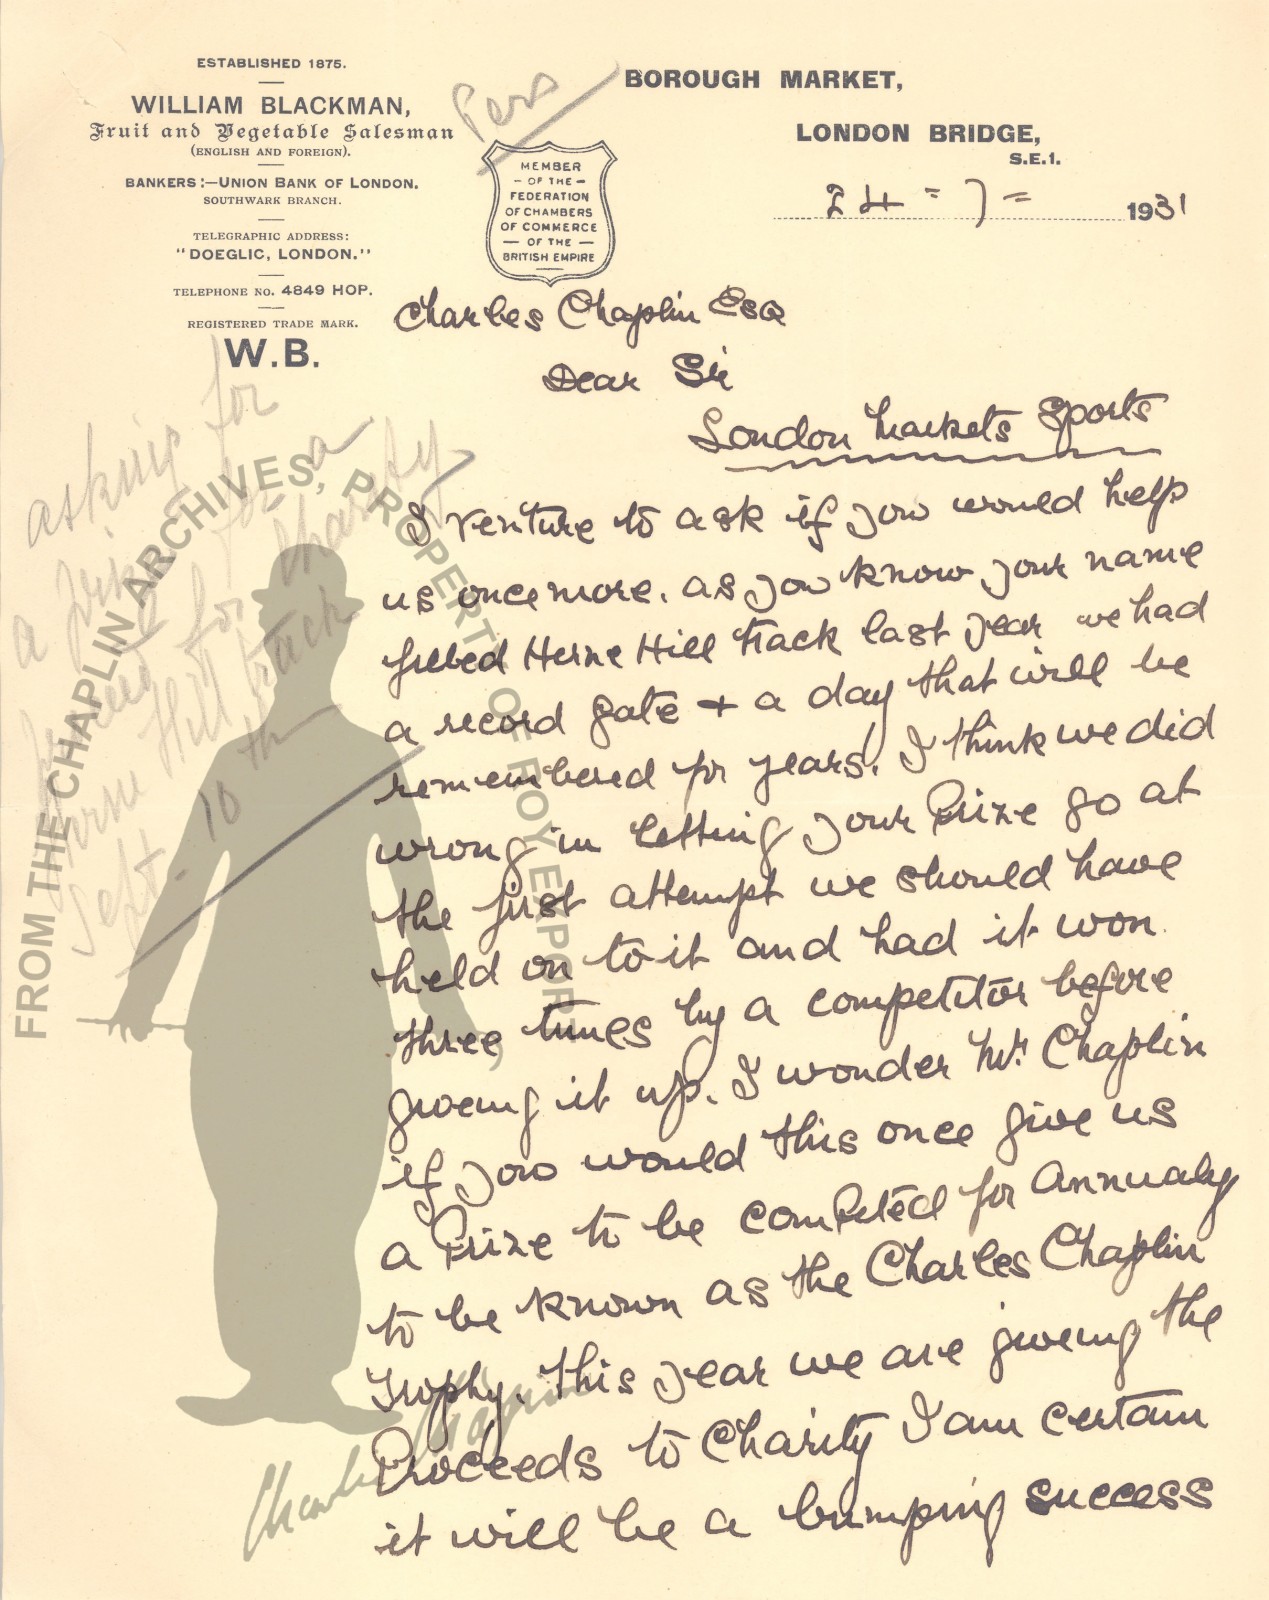 ESTABLISHED 1875.
WILLIAM BLACKMAN,
Fruit and Vegetable Salesman
(ENGLISH AND FOREIGN).
BANKERS:—UNION BANK OF LONDON.
SOUTHWARK BRANCH.
TELEGRAPHIC ADDRESS:
"DOEGLIC, LONDON."
TELEPHONE NO. 4849 HOP.
REGISTERED TRADE MARK.
W.B.
Pers
MEMBER
— OF THE —
FEDERATION
OF CHAMBERS
OF COMMERCE
— OF THE —
BRITISH EMPIRE
BOROUGH MARKET,
LONDON BRIDGE,
S.E.1.
24 - 7 - 1931
Charles Chaplin Esq
Dear Sir
London Markets Sports
I venture to ask if you would help
us once more. as you know your name
filled Herne Hill Track last year we had
a record gate + a day that will be
remembered for years. I think we did
wrong in letting your Prize go at
the first attempt we should have
held on to it and had it won
three times by a competitor before
giveing it up. I wonder Mr. Chaplin
if you would this once give us
a Prize to be competed for Annualy
to be known as the Charles Chaplin
Trophy. This year we are giveing the
Proceeds to Charity I am certain
it will be a bumping success
asking for
a prize for a
for charity
Herne Hill track
Sept. 10th
FROM THE CHAPLIN ARCHIVES, PROPERTY OF ROY EXPORT
Charlie Chaplin